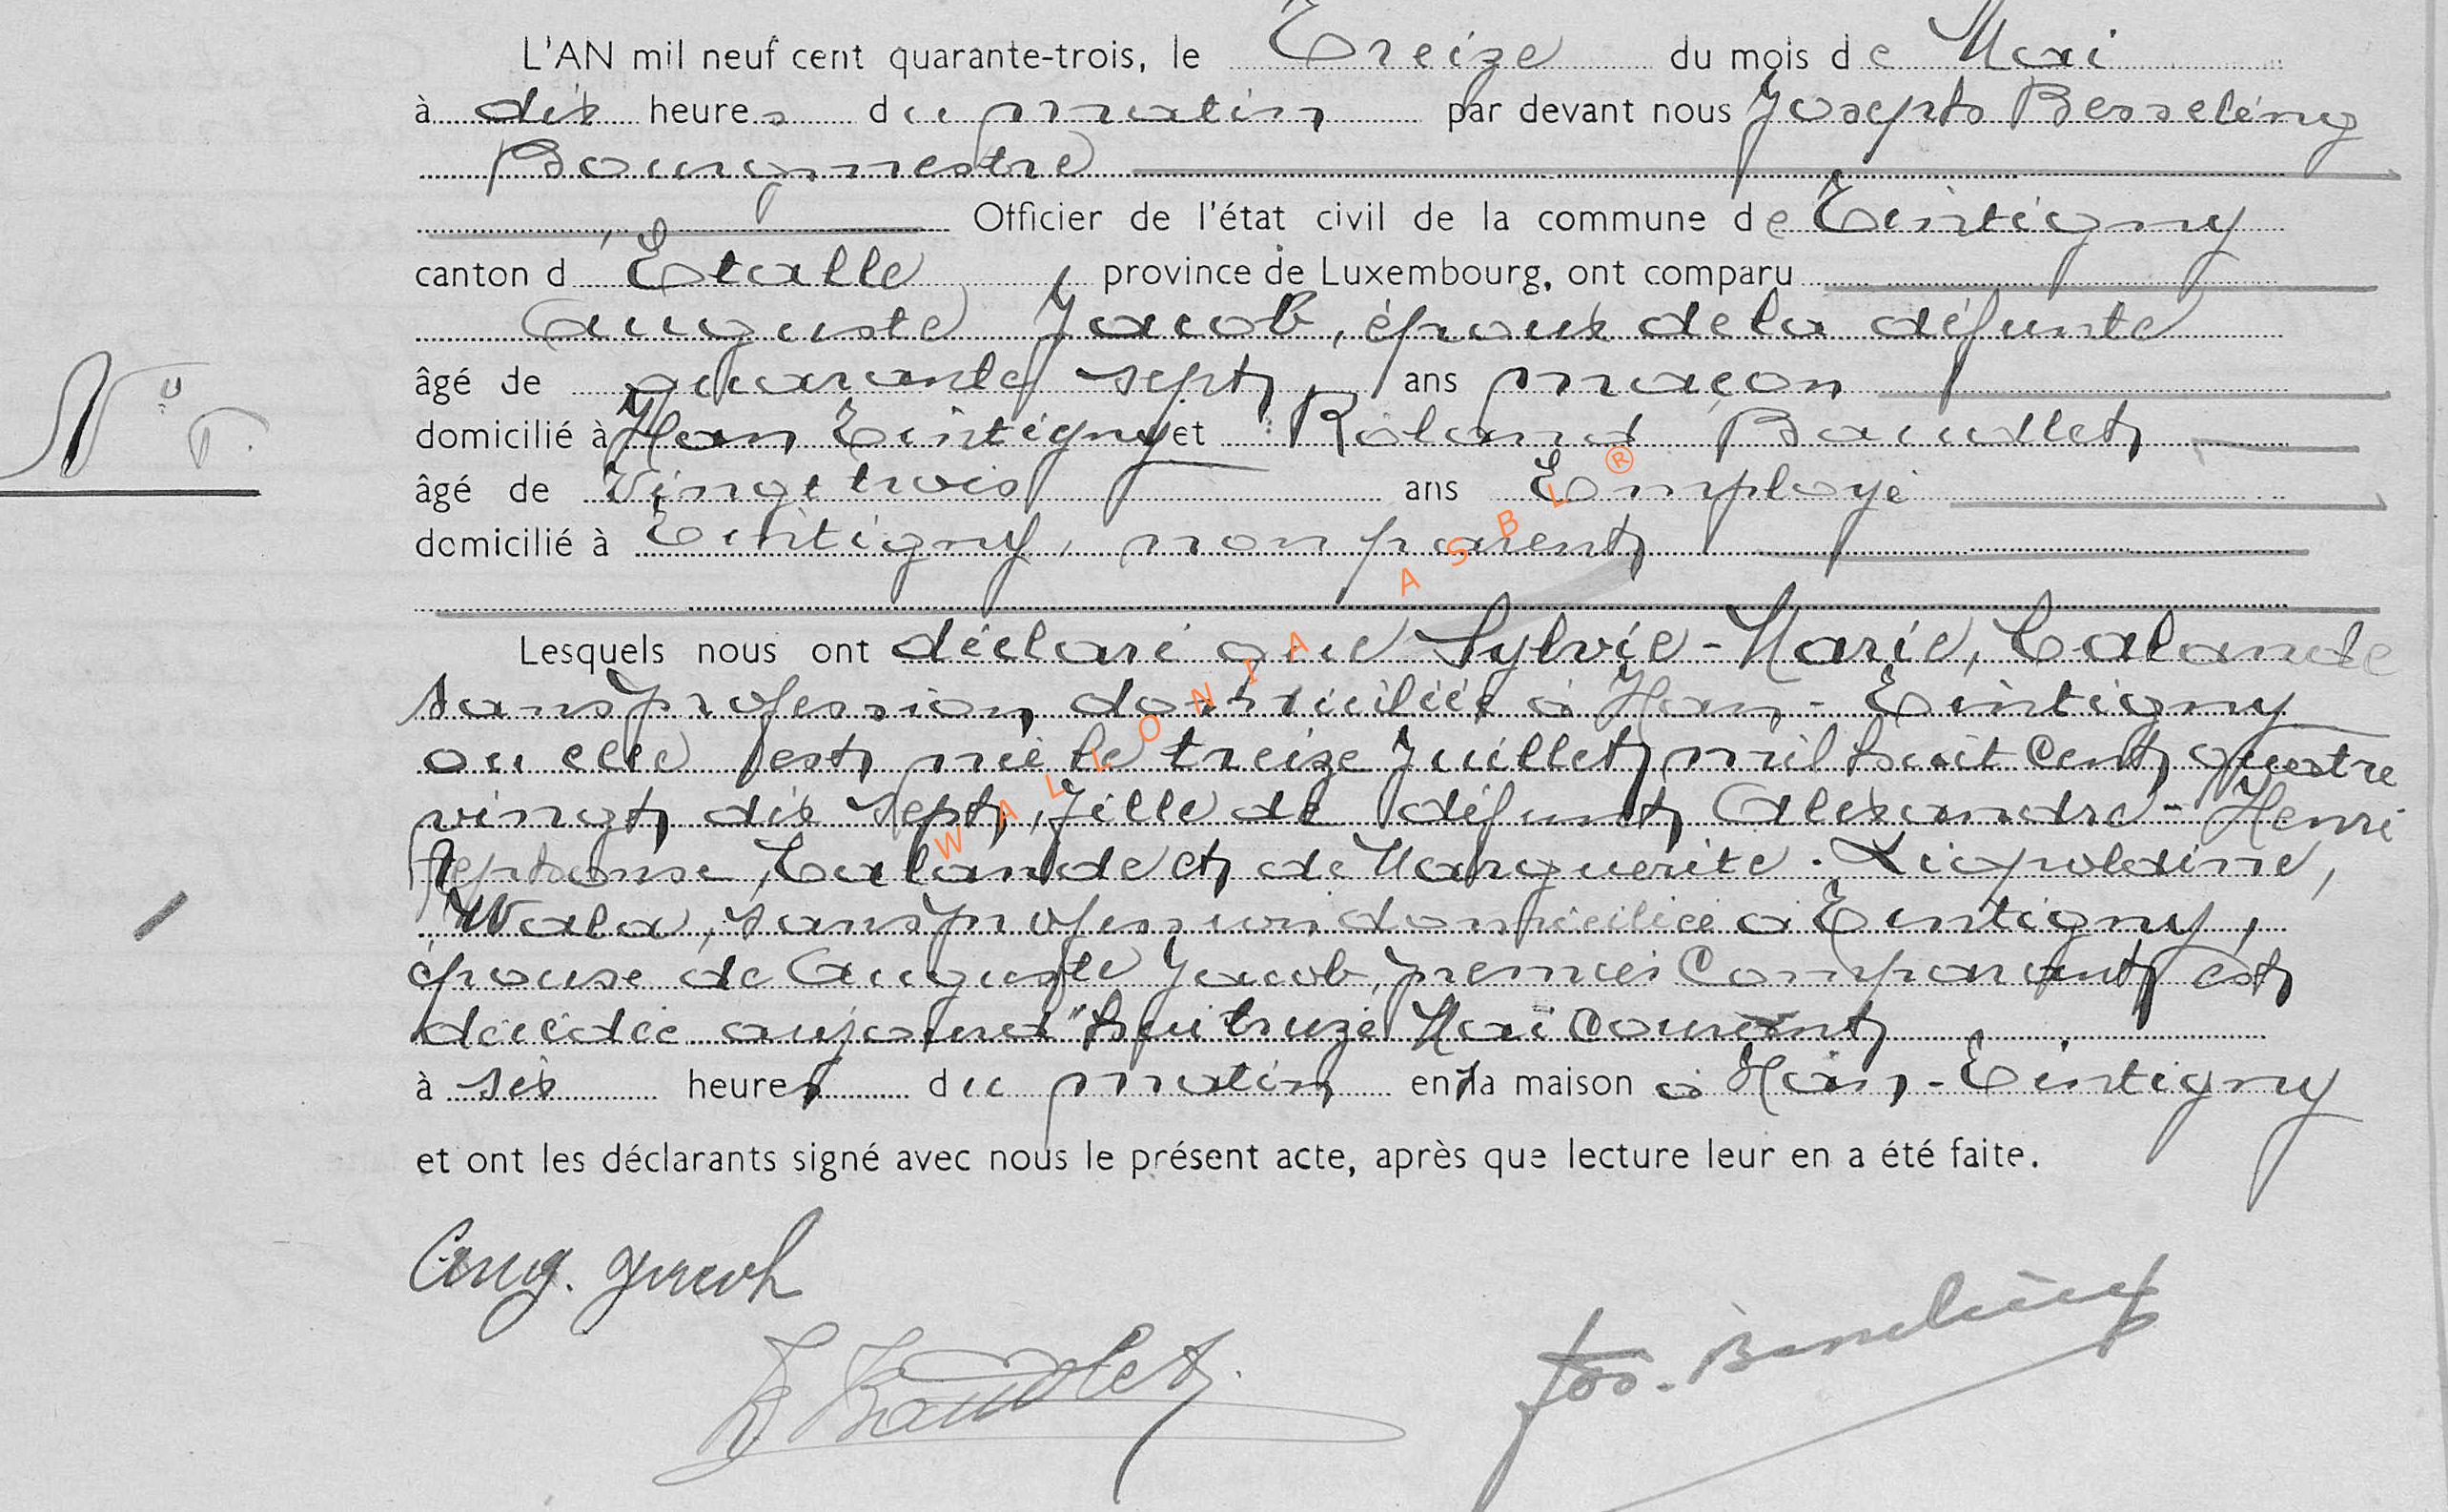 L'AN mil neuf cent quarante-trois, le Treize du mois de Mai
à dix heures du matin par devant nous Joseph Besseling
Bourgmestre
Officier de l'état civil de la commune de Tintigny
canton d'Etalle province de Luxembourg, ont comparu
Auguste Jacob, époux de la défunte
âgé de quarante sept ans maçon
N°
domicilié à Han Tintigny et Roland Baudlet
âgé de Vingt trois ans Employé
domicilié à Tintigny, non parent
Lesquels nous ont déclaré que Sylvie-Marie, Calande
sans profession domiciliée à Han-Tintigny
ou elle est née le treize Juillet mil huit cent quatre
vingt dix sept, fille de défunt Alexandre-Henri
Calande et de Marguerite-Léopoldine,
Wala, sans profession domiciliée à Tintigny,
épouse de Auguste Jacob, premier Comparant est
décédée aujourd'hui treize Mai Courant
à six heures du matin en la maison à Han-Tintigny
et ont les déclarants signé avec nous le présent acte, après que lecture leur en a été faite.
Aug. Jacob
R Baudlet
Jos. Besseling
WALLONIA ASBL ®